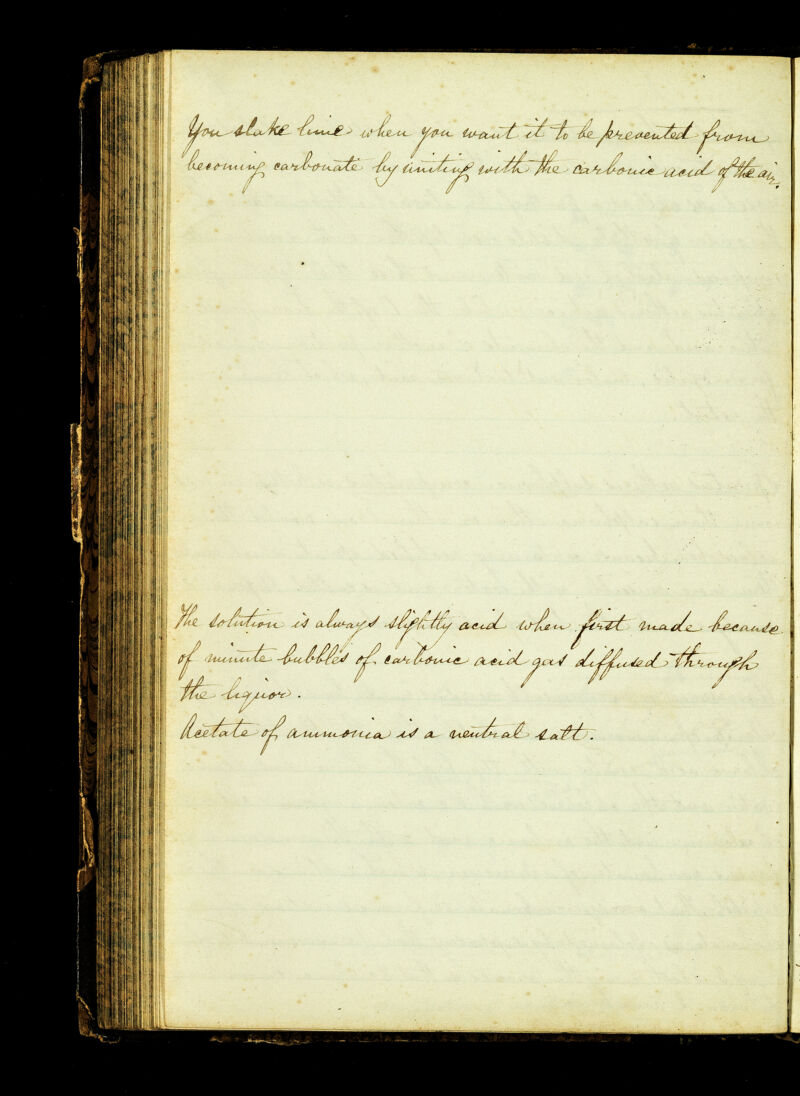 You slake lime when you want it to be prevented from
becoming carbonate by uniting with the carbonic acid of the air.
The solution is always slightly acid when first made because
of minute bubbles of carbonic acid gas diffused through
the liquor.
Acetate of ammonia is a neutral salt.